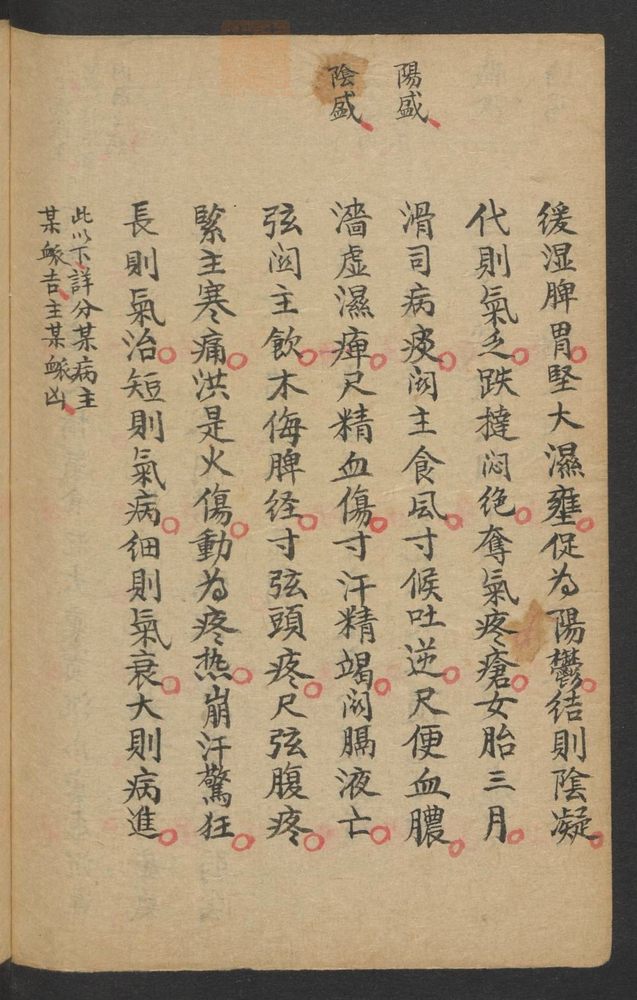 陽盛
陰盛
緩湿脾胃堅大濕壅促为陽鬱結則陰凝
代則氣乏跌撻悶絶奪氣疼瘡女胎三月
滑司病痰関主食風寸候吐逆尺便血膿
濇虛濕痺尺精血傷寸汗精竭関膈液亡
弦関主飲木侮脾経寸弦頭疼尺弦腹疼
緊主寒痛洪是火傷動为疼热崩汗驚狂
長則氣治短則氣病細則氣衰大則病進
此以下詳分某病主
某脈吉主某脈凶